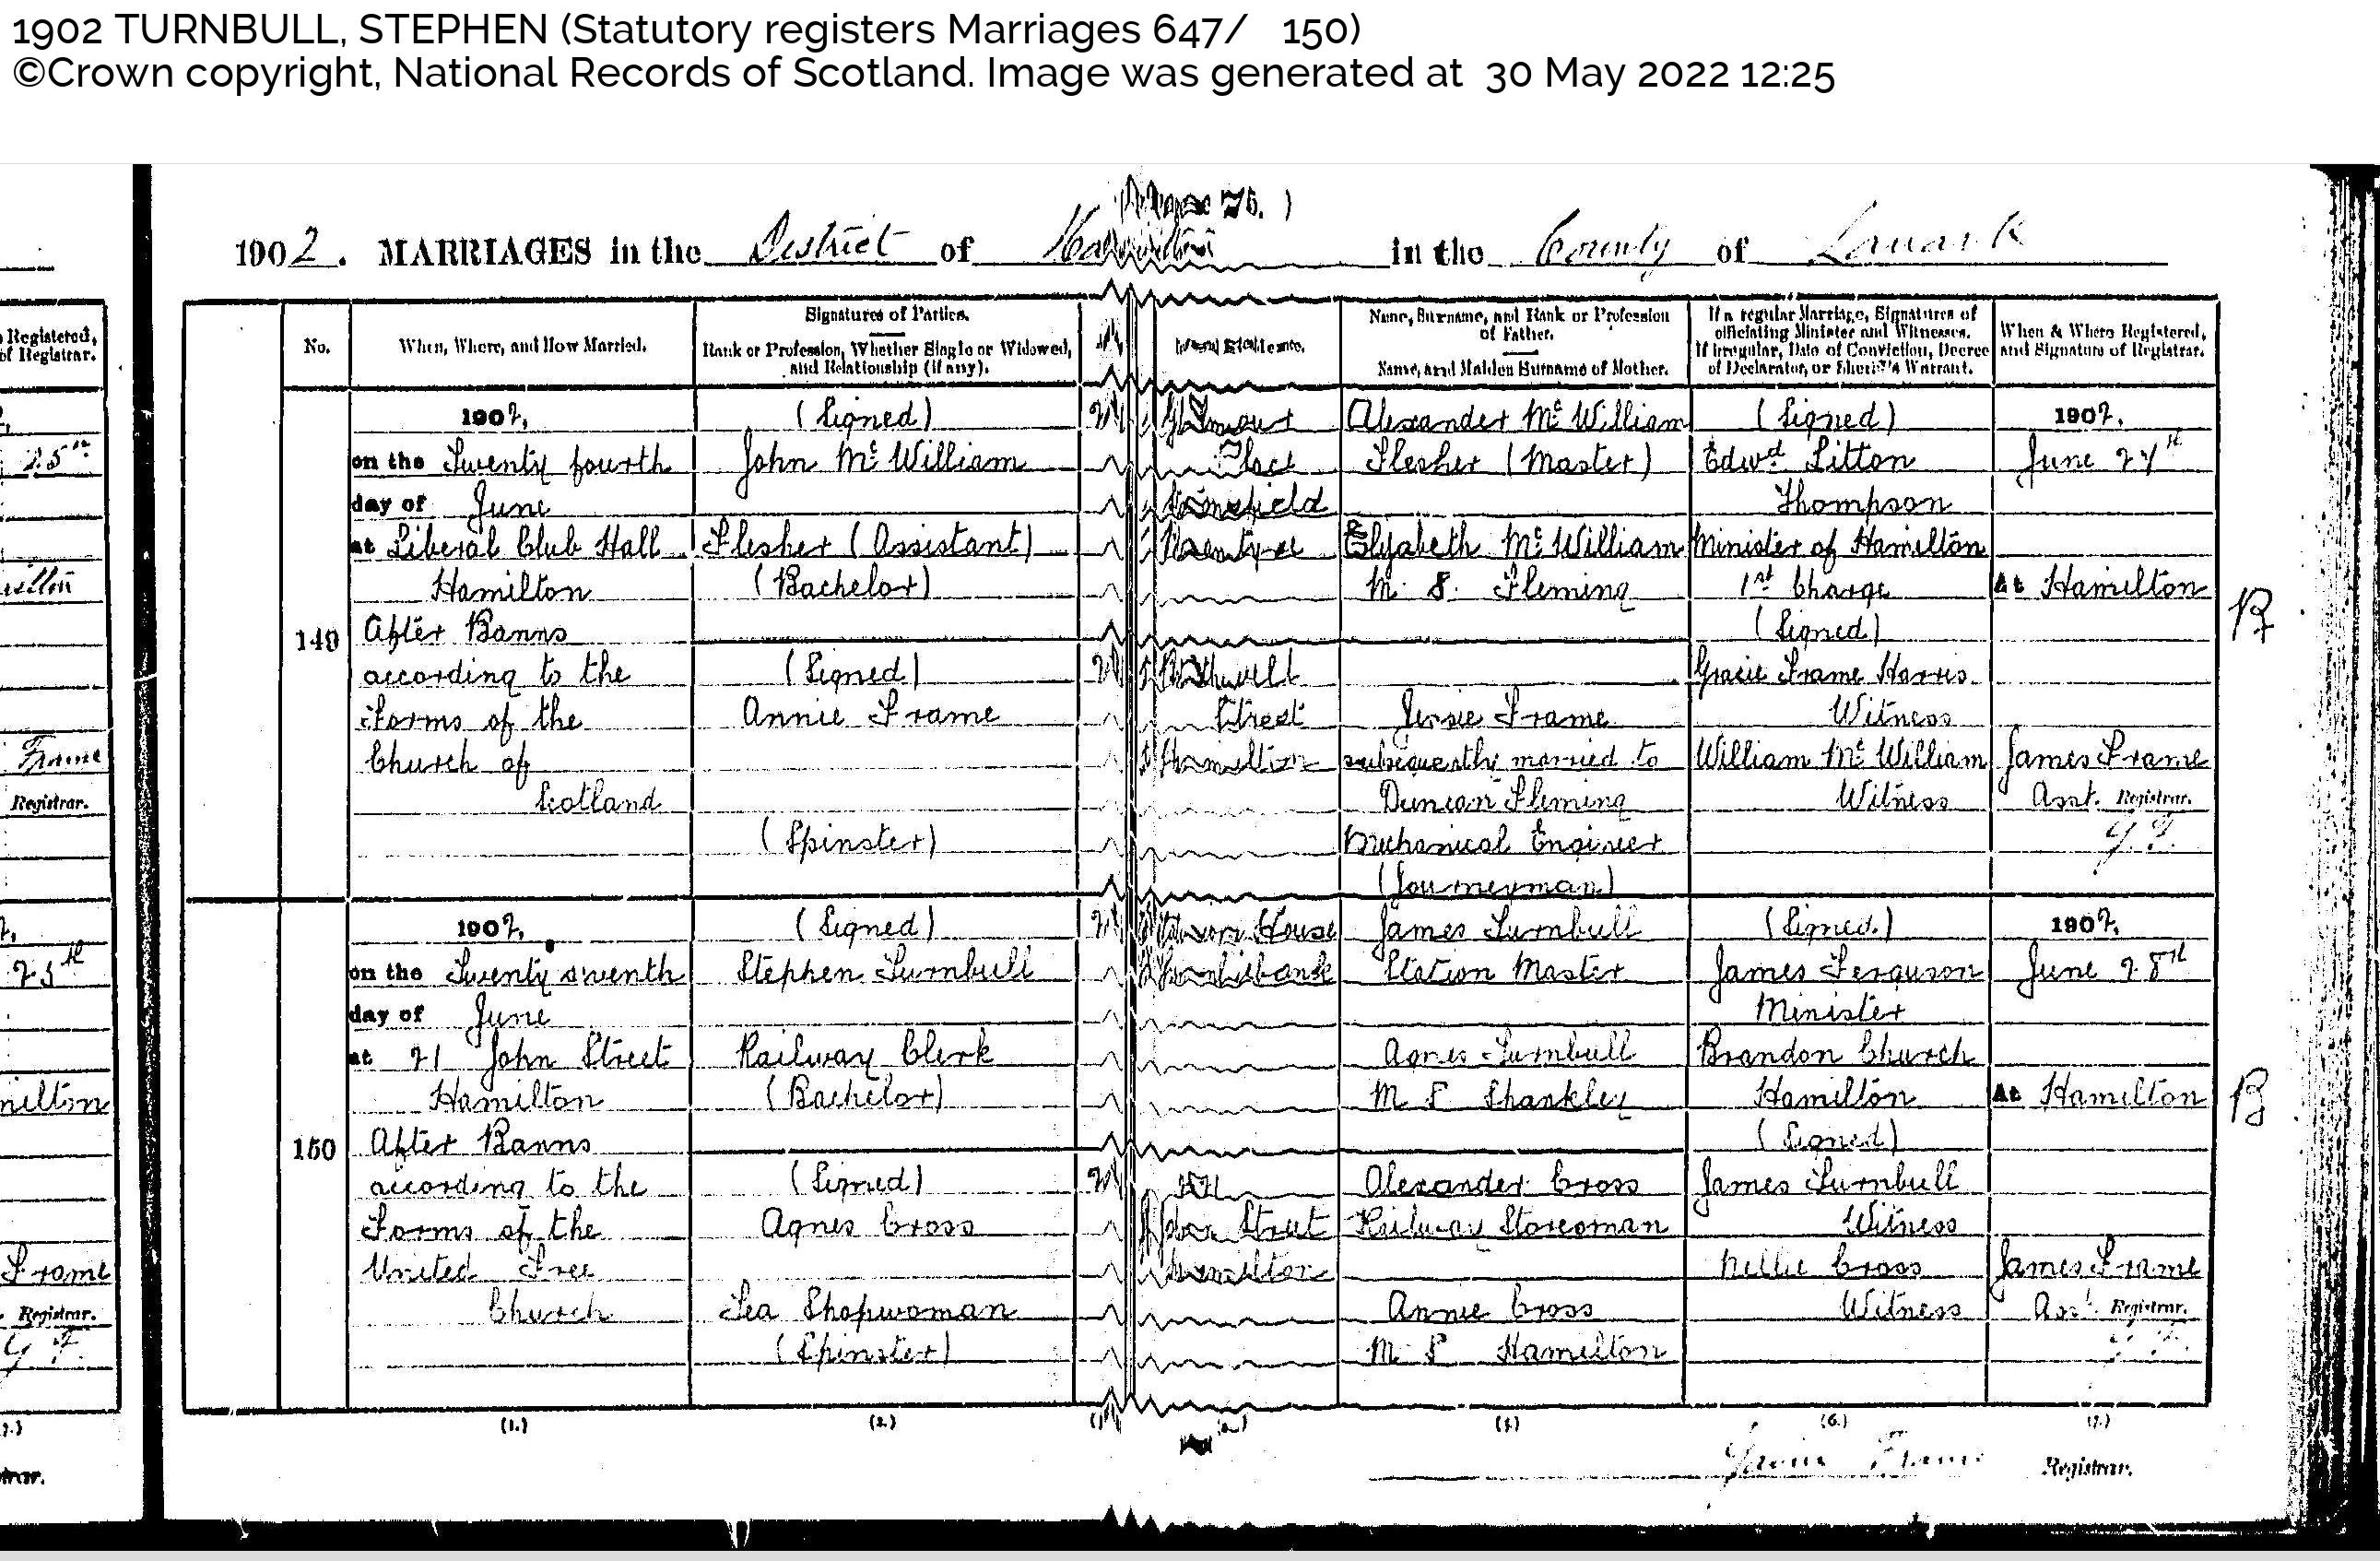 1902 TURNBULL, STEPHEN (Statutory registers Marriages 647/ 150)
©Crown copyright, National Records of Scotland. Image was generated at 30 May 2022 12:25
1902. MARRIAGES in the District of in the County of Lanark
Registered,
of Registrar.
25th
Frame
Registrar.
25th
milton
Frame
Registrar.
G F.
No.
When, Where, and How Married.
Signatures of Parties.
Rank or Profession, Whether Single or Widowed,
and Relationship (if any).
Name, Surname, and Rank or Profession
of Father.
Name, and Maiden Surname of Mother.
If a regular Marriage, Signatures of
officiating Minister and Witnesses.
If irregular, Date of Conviction, Decree
of Declarator, or Sheriff's Warrant.
When & Where Registered,
and Signature of Registrar.
149
1902,
on the Twenty fourth
day of June
at Liberal Club Hall
Hamilton
After Banns
according to the
Forms of the
Church of
Scotland
(Signed)
John McWilliam
Flesher (Assistant)
(Bachelor)
(Signed)
Annie Frame
(Spinster)
Place
Bothwell
Street
Hamilton
Alexander McWilliam
Flesher (Master)
Elizabeth McWilliam
M. S. Fleming
Jessie Frame
subsequently married to
Duncan Fleming
Mechanical Engineer
(Journeyman)
(Signed)
Edwd Litton
Thompson
Minister of Hamilton
1st Charge
(Signed)
Gracie Frame Harris
Witness
William McWilliam
Witness
1902.
June 24th
At Hamilton
James Frame
Asst. Registrar.
G. F.
150
1902,
on the Twenty seventh
day of June
at 21 John Street
Hamilton
After Banns
according to the
Forms of the
United Free
Church
(Signed)
Stephen Turnbull
Railway Clerk
(Bachelor)
(Signed)
Agnes Cross
Tea Shopwoman
(Spinster)
House
John Street
Hamilton
James Turnbull
Station Master
Agnes Turnbull
M S Shankley
Alexander Cross
Railway Storeman
Annie Cross
M S Hamilton
(Signed.)
James Ferguson
Minister
Brandon Church
Hamilton
(Signed)
James Turnbull
Witness
Nellie Cross
Witness
1902.
June 28th
At Hamilton
James Frame
Asst. Registrar.
B
(1.)
(2.)
(6.)
(7.)
Gavin Frame Registrar.